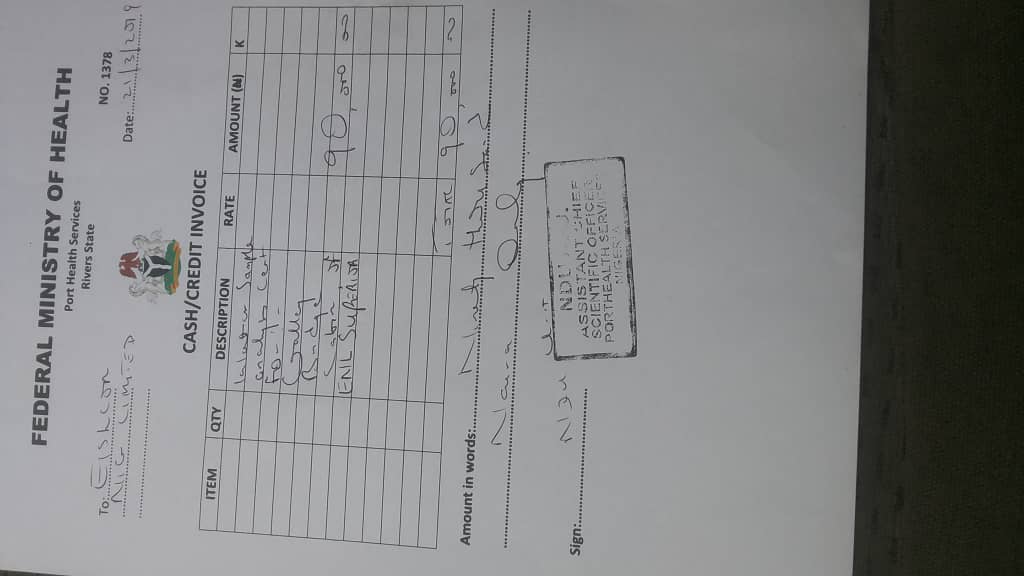 FEDERAL MINISTRY OF HEALTH
Port Health Services
Rivers State
NO. 1378
To: Eishcon
NIG LIMITED
Date: 21/3/2019
CASH/CREDIT INVOICE
ITEM QTY DESCRIPTION RATE AMOUNT (₦) K
Sample
analysis Cert
for
Galley
Bridge
Cabin of 90,000 00
ENIL SUPERIOR
Total 90,000
Amount in words: Ninety thousand
Naira Only
Sign: NDU
NDU J.
ASSISTANT CHIEF
SCIENTIFIC OFFICER
PORTHEALTH SERVICES
NIGERIA